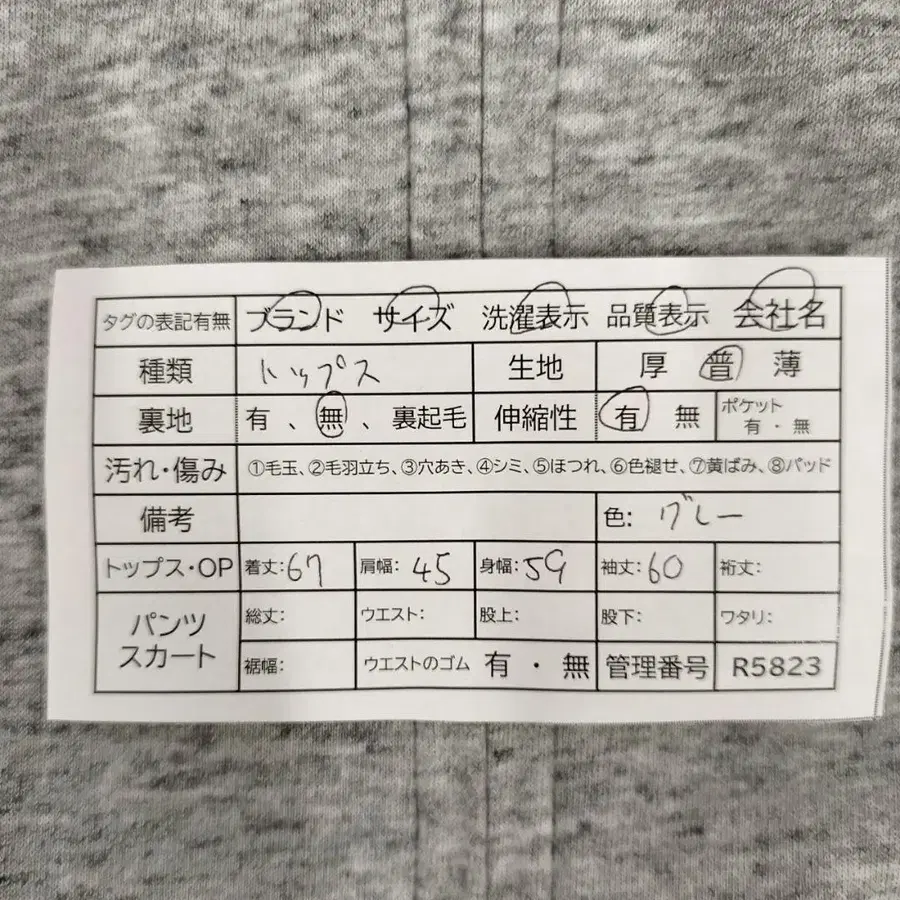 タグの表記有無 ブランド サイズ 洗濯表示 品質表示 会社名
種類 トップス 生地 厚 普 薄
裏地 有 、 無 、 裏起毛 伸縮性 有 無 ポケット 有 ・ 無
汚れ・傷み ①毛玉、②毛羽立ち、③穴あき、④シミ、⑤ほつれ、⑥色褪せ、⑦黄ばみ、⑧パッド
備考 色: グレー
トップス・OP 着丈:67 肩幅: 45 身幅:59 袖丈:60 裄丈:
パンツ スカート 総丈: ウエスト: 股上: 股下: ワタリ:
裾幅: ウエストのゴム 有 ・ 無 管理番号 R5823